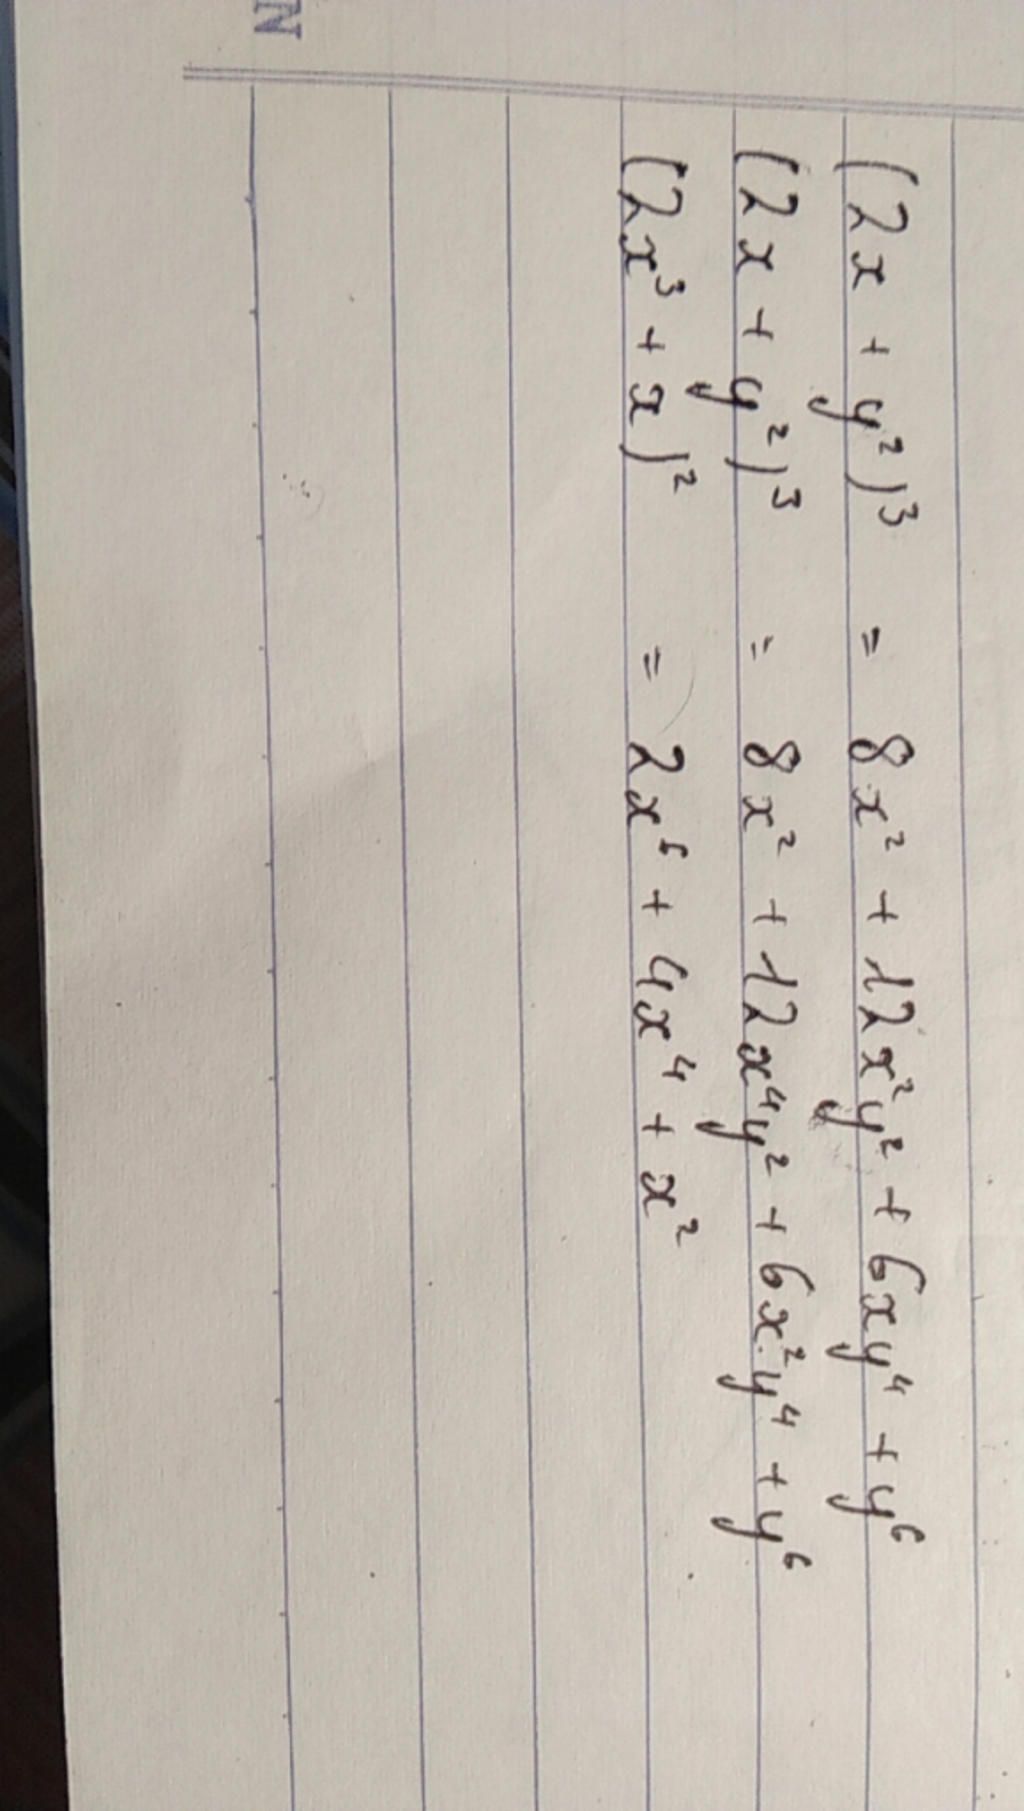 N
(2x + y²)³ = 8x² + 12x²y² + 6xy⁴ + y⁶
(2x + y²)³ = 8x² + 12x⁴y² + 6x²y⁴ + y⁶
(2x³ + x)² = 2x⁶ + 4x⁴ + x²